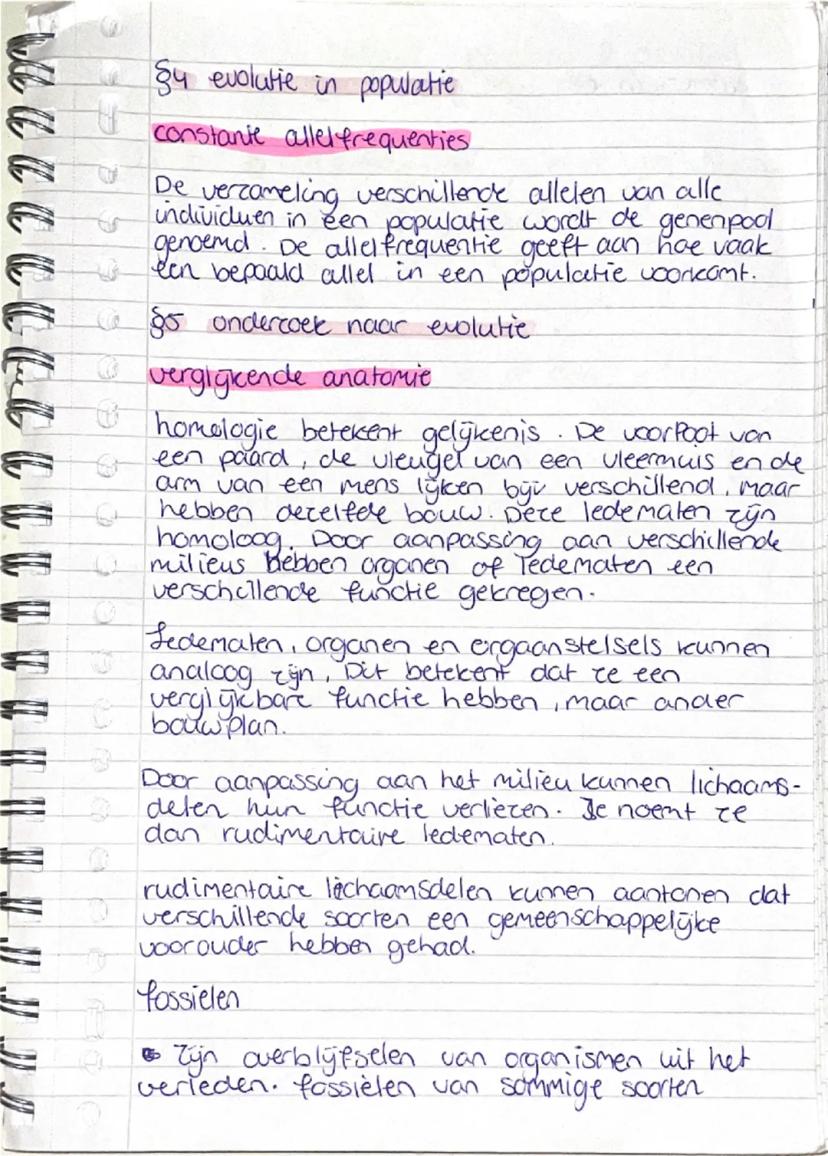 §4 evolutie in populatie
constante allelfrequenties
De verzameling verschillende allelen van alle
individuen in een populatie wordt de genenpool
genoemd. De allelfrequentie geeft aan hoe vaak
een bepaald allel in een populatie voorkomt.
§5 onderzoek naar evolutie
vergelijkende anatomie
homologie betekent gelijkenis. De voorpoot van
een paard, de vleugel van een vleermuis en de
arm van een mens lijken bijv verschillend, maar
hebben dezelfde bouw. Deze ledematen zijn
homoloog. Door aanpassing aan verschillende
milieus hebben organen of ledematen een
verschillende functie gekregen.
Ledematen, organen en orgaanstelsels kunnen
analoog zijn, Dit betekent dat ze een
vergelijkbare functie hebben, maar ander
bouwplan.
Door aanpassing aan het milieu kunnen lichaams-
delen hun functie verliezen. Je noemt ze
dan rudimentaire ledematen.
rudimentaire lichaamsdelen kunnen aantonen dat
verschillende soorten een gemeenschappelijke
voorouder hebben gehad.
fossielen
Zijn overblijfselen van organismen uit het
verleden. fossielen van sommige soorten